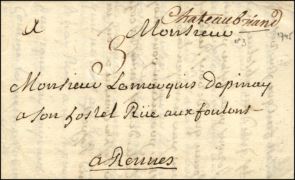 Chateaubriand
a Monsieur
3
Monsieur Lemarquis depinay
a son hostel Rüe aux foulons
a Rennes